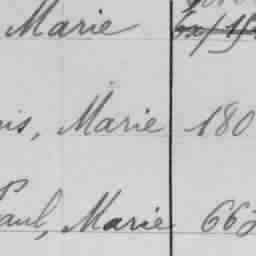 Marie
is, Marie 180
Paul, Marie 662